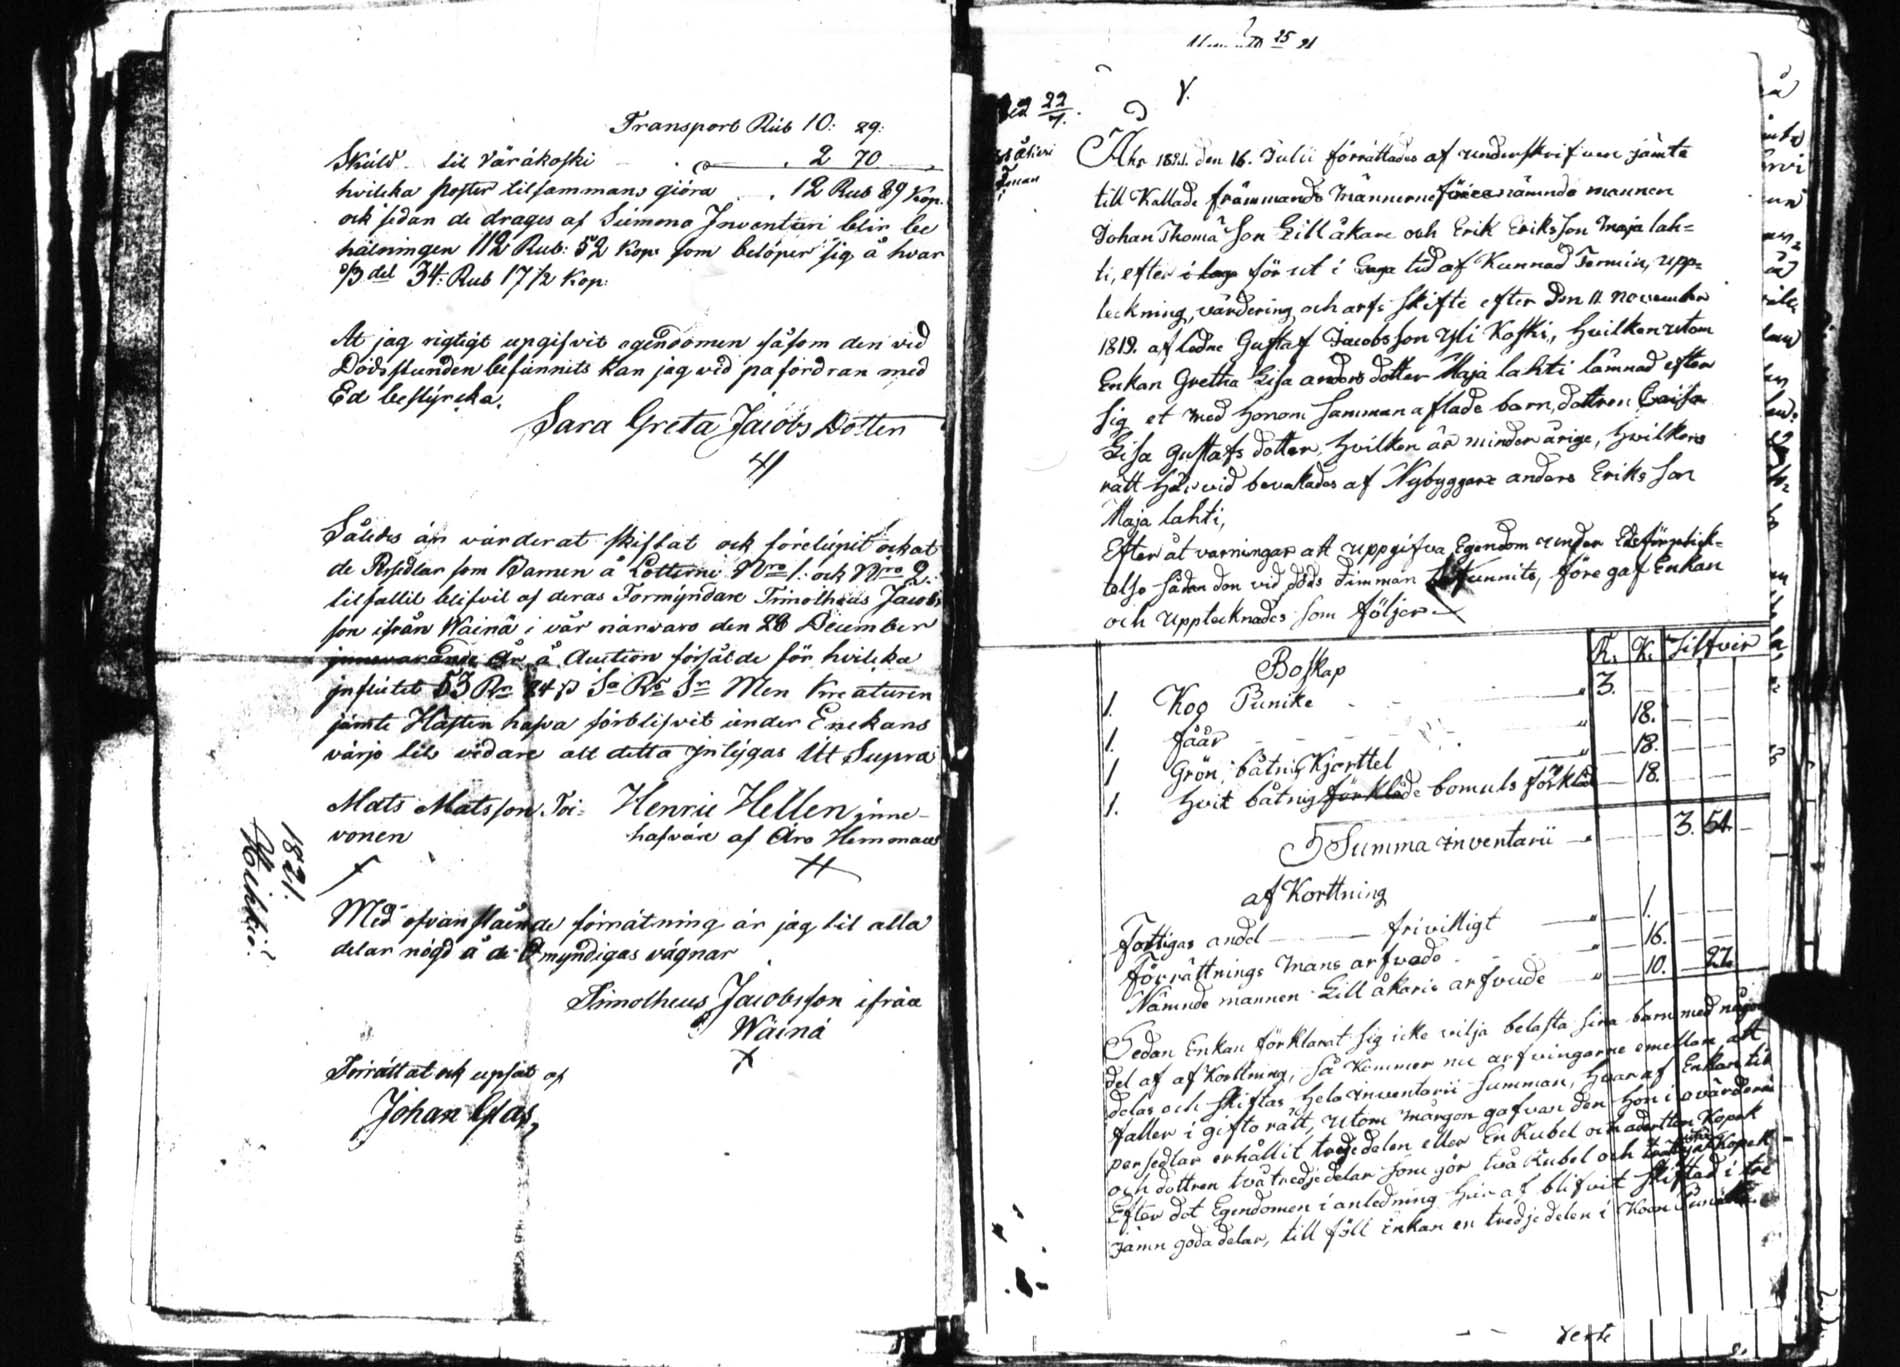 Transport Rub 10: 29:
Skuld til Väräkoski . 2 70
hvilcka poster tilsammans giöra . 12 Rub 89 Kop.
ock sedan de drages af Summa Inventari blir be
hålningen 112 Rub: 52 Kop: som belöper sig å hvar
1/3 del 34: Rub 17 1/2 Kop:
At jag rigtigt upgifvit egendomen såsom den vid
Dödsstunden befunnits kan jag vid påfordran med
Ed bestyrcka.
Sara Greta Jacobs Dotter
Således är värderat skiftat och
de Persedlar som Barnen å Lotterne Nro 1: och Nro 2:
tilfallit blifvit af deras Förmyndare Timotheus Jacobs
son ifrån Wainä i vår närvaro den 28 December
innevarande År å Auction försålde för hvilcka
influtet 53 Rr 24 Men Kreaturen
jämte Hästen hafva förblifvit under Enckans
värjo tils vidare alt detta intygas Ut Supra
Mats Matsson Toi= Henric Hellen inne-
vonen hafvare af Äro Hemman
1821.
Med ofvanstående förrätning är jag til alla
delar nögd å de Omyndigas vägnar
Timotheus Jacobsson ifrån
Wäinä
Förrättat och upsat af
Johan Glas,
25 21
22
7.
Åhr 1821. den 16. Julii förrättades af underskrifven jämte
till Kallade främmande Männerne nämnde mannen
Johan Thoma Son Lillåkare och Erik Eriksson Maja lah=
ti, efter i laga för ut i Laga tid af Kunnad Termin, upp=
teckning, värdering och arfs skifte efter den 11 november
1819. afledne Gustaf Jacobsson Yli Koski, hvilken utom
Enkan Gretha Lisa anders dotter Maja lahti lämnad efter
sig et med honom sammanaflade barn, dottren Caisa
Lisa Gustafs dotter, hvilken är minderårige, hvilkens
rätt härvid bevakades af Nybyggare anders Eriks Son
Maja lahti,
Efter åtvarningar att uppgifva Egendom under Edsförplick=
telse sådan den vid döds timman befunnits, före gaf Enkan
och upptecknades som följer
R. K. Silfver
Boskap
1. Kog Punike 3.
1. fåår 18.
1 Grön båtnig Kjorttel 18.
1. hvit båtnig förkläde bomuls förkläd 18.
Summa inventarii 3. 54.
af Korttning
fattigas andel frivilligt 1.
förrättnings Mans arfvode 16.
Nämnde mannen Lill åkaris arfvude 10. 27.
Sedan Enkan förklarat sig icke vilja belasta sina barn med någon
del af af Korttning, så kommer nu arfvingarne emellan att
delas och skiftas hela inventarii Summan, hvaraf Enkan till
faller i gifto rätt, utom Morgon gafvan den hon i ovärderade
persedlar erhållit tredjedelen eller En Rubel och adertton Kopek
och dottren två tredjedelar som gör två Rubel och Kopek
Efter det Egendomen i anledning här af blifvit skiftad i tre
jämn goda delar, till föll Enkan en tredjedelen i Koon Punike
verte